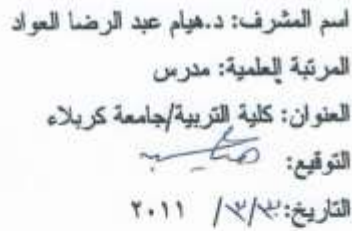 اسم المشرف: د.هيام عبد الرضا العواد
المرتبة العلمية: مدرس
العنوان: كلية التربية/جامعة كربلاء
التوقيع:
التاريخ: / / ٢٠١١